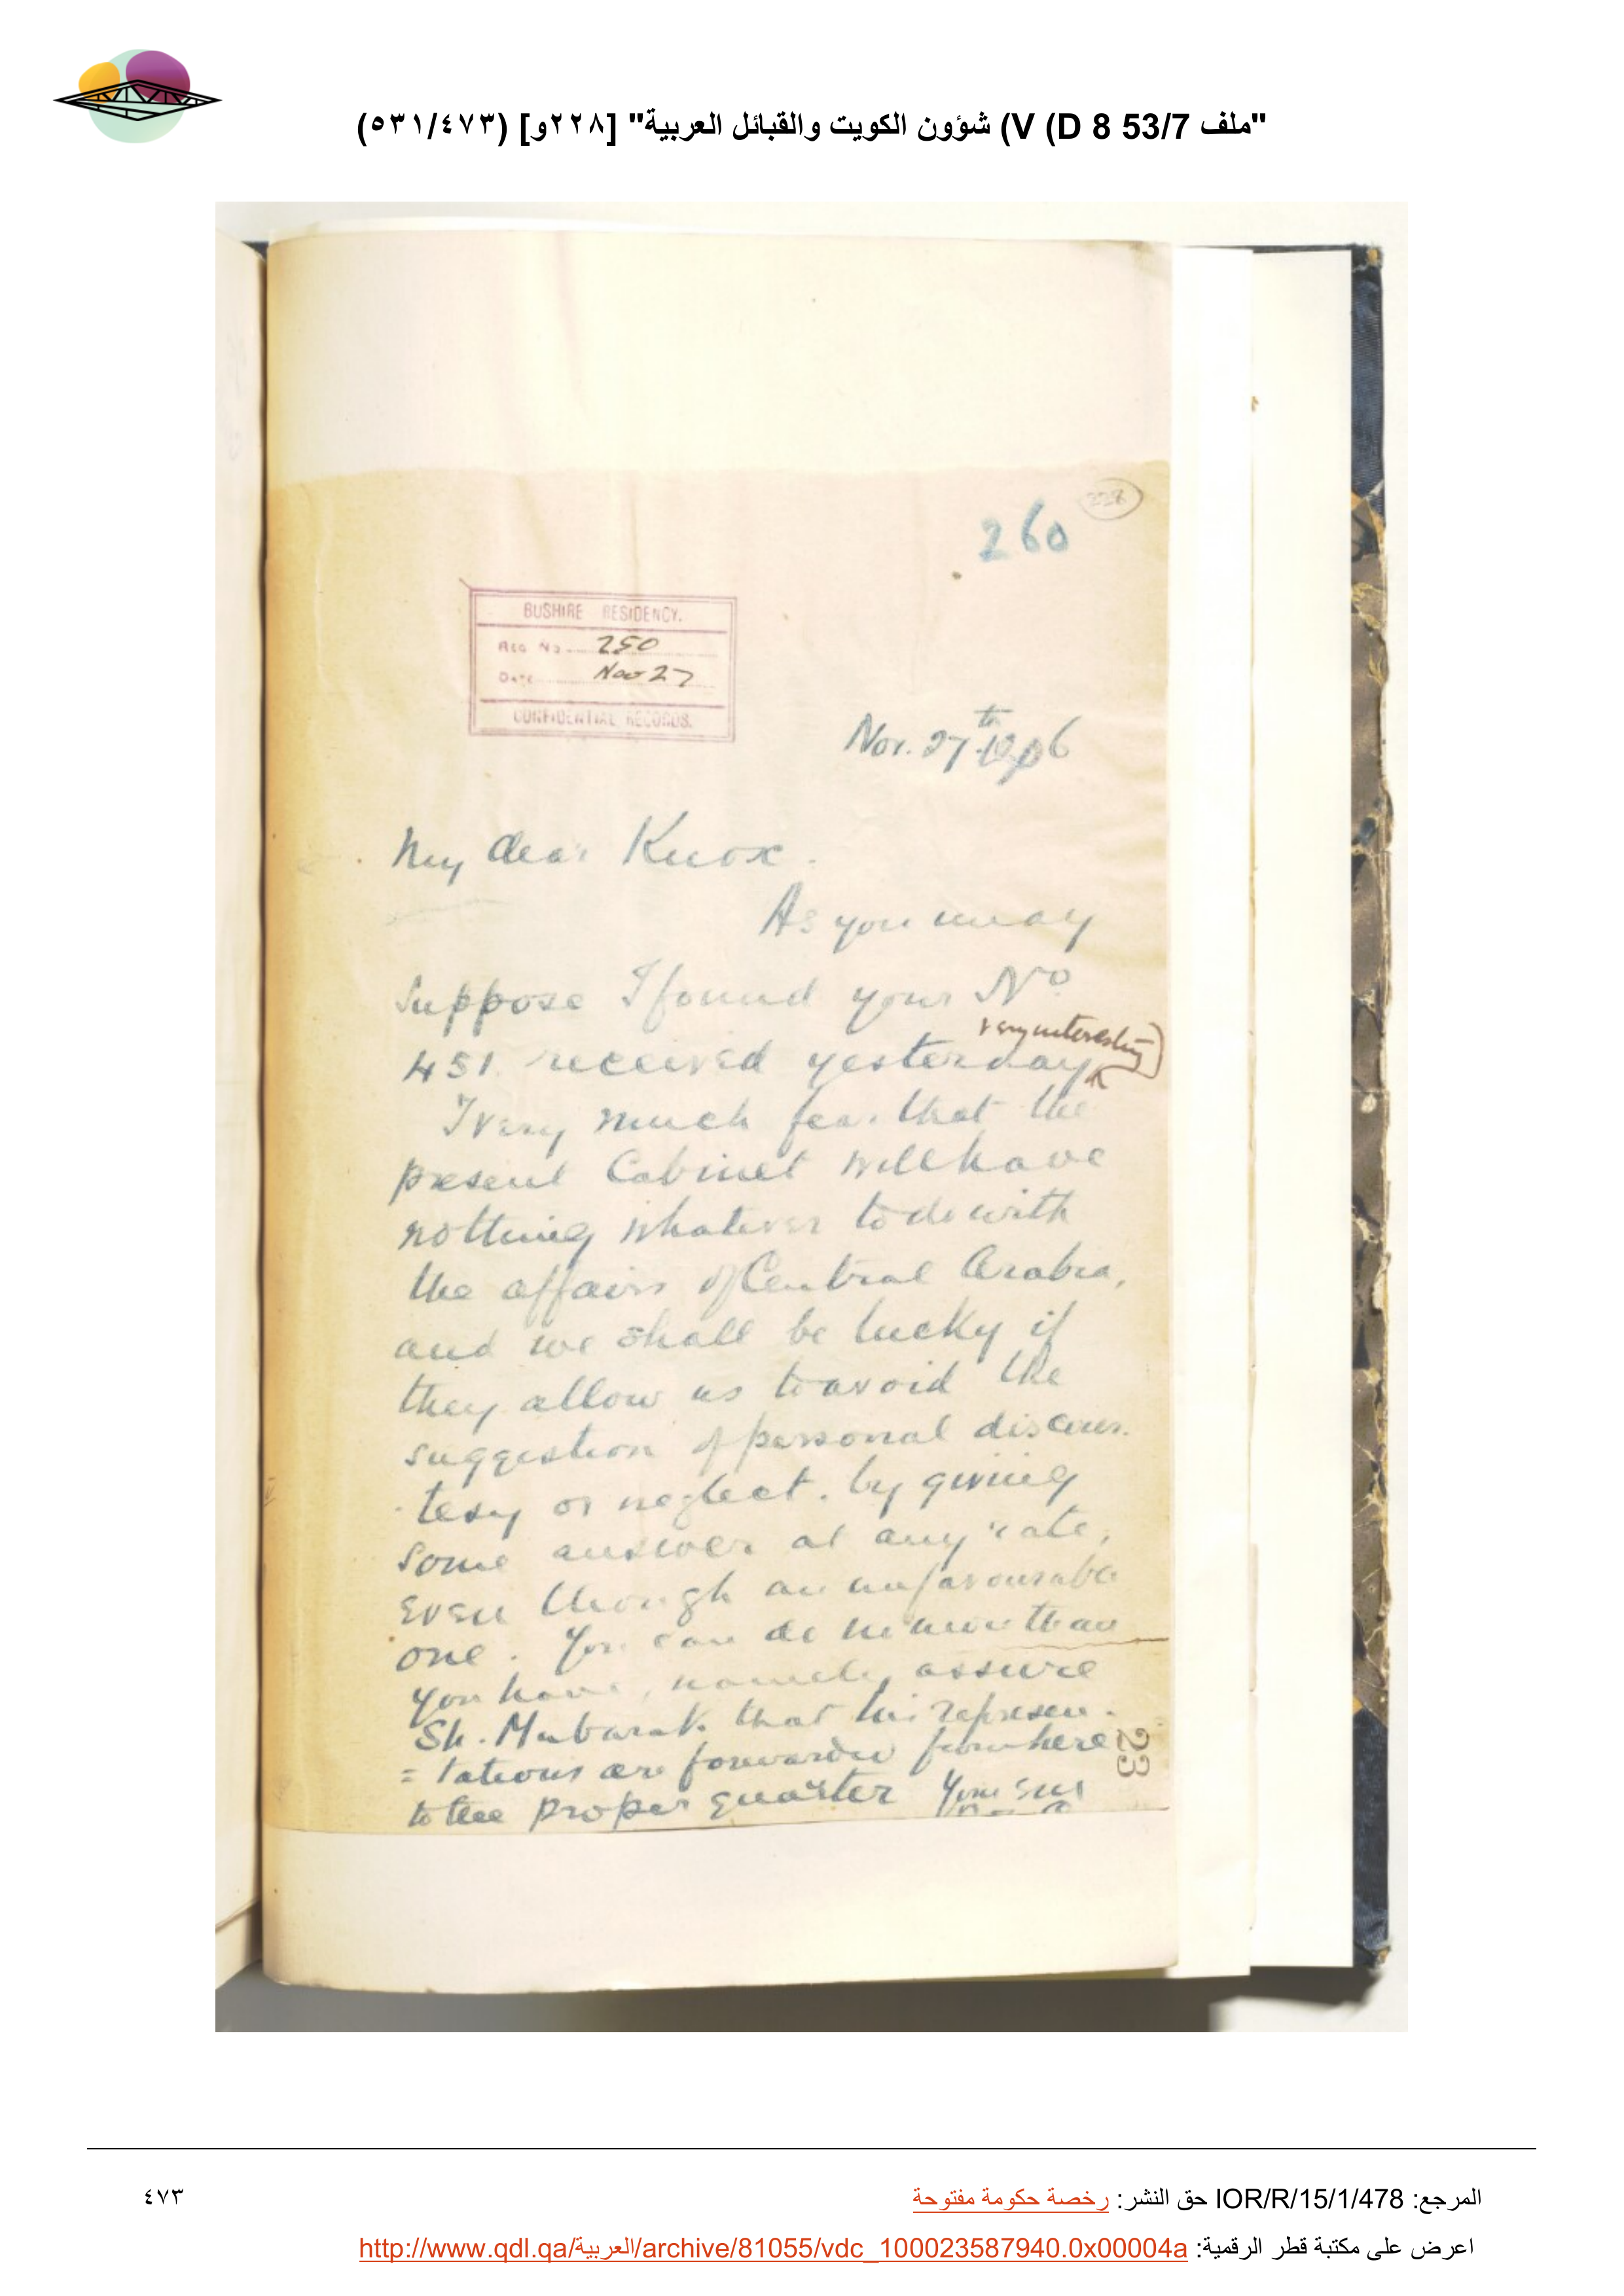 "ملف 53/7 V (D 8) شؤون الكويت والقبائل العربية" [٢٢٨و] (٥٣١/٤٧٣)
228
260
BUSHIRE RESIDENCY.
Reg No 250
Date Nov 27
CONFIDENTIAL RECORDS.
Nov. 27th 1906
My dear Knox.
As you may
suppose I found your No
very interesting
451 received yesterday
I very much fear that the
present Cabinet will have
nothing whatever to do with
the affairs of Central Arabia,
and we shall be lucky if
they allow us to avoid the
suggestion of personal discour-
-tesy or neglect. by giving
some answer at any rate,
even though an unfavourable
one. You can do no more than
you have, namely assure
Sh. Mubarak that his represen-
=tations are forwarded from here
to the proper quarter Yours
23
المرجع: IOR/R/15/1/478 حق النشر: رخصة حكومة مفتوحة
٤٧٣
اعرض على مكتبة قطر الرقمية: http://www.qdl.qa/العربية/archive/81055/vdc_100023587940.0x00004a